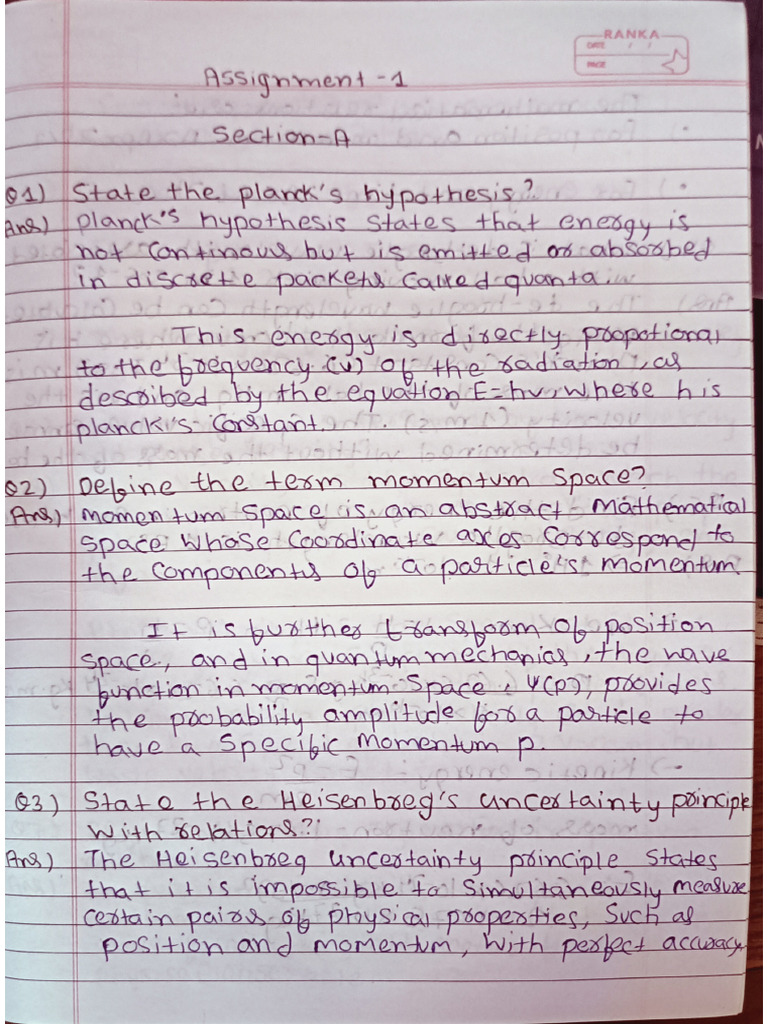 RANKA
DATE / /
PAGE
Assignment-1
Section-A
Q1) State the planck's hypothesis?
Ans) planck's hypothesis states that energy is
not continous but is emitted or absorbed
in discrete packets called quanta.
This energy is directly propotional
to the frequency (v) of the radiation, as
described by the equation E=hv, where h is
planck's constant.
Q2) Define the term momentum space?
Ans) momentum space is an abstract mathematical
space whose coordinate axes correspond to
the components of a particle's momentum.
It is further transform of position
space, and in quantum mechanics, the wave
function in momentum space, Ψ(p), provides
the probability amplitude for a particle to
have a specific momentum p.
Q3) State the Heisenbreg's uncertainty principle
with relations?
Ans) The Heisenbreg uncertainty principle states
that it is impossible to simultaneously measure
certain pairs of physical properties, such as
position and momentum, with perfect accuracy.